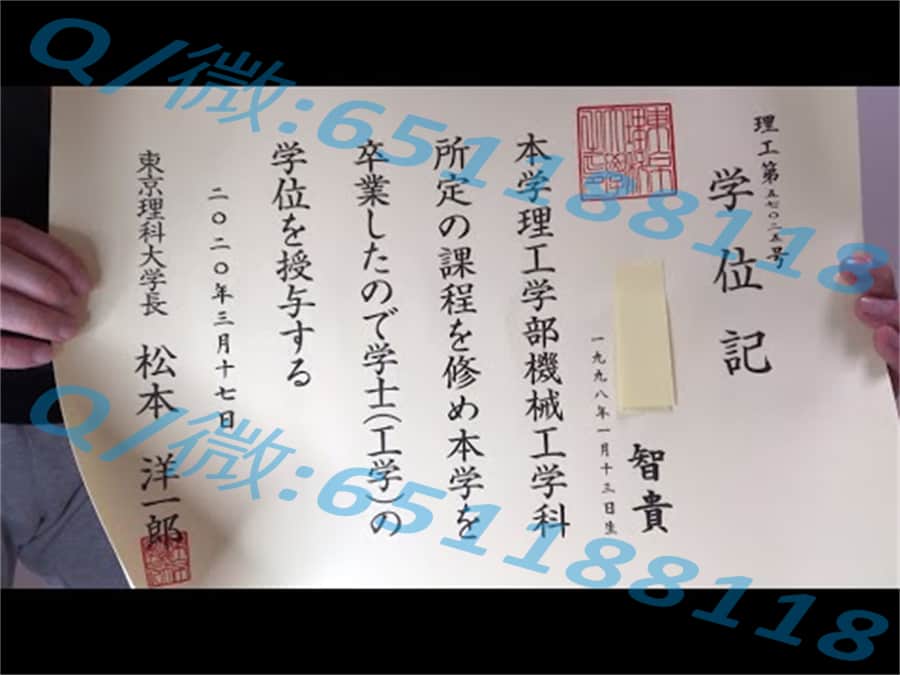 理工第五七〇二五号
学位記
智貴
一九九八年一月十三日生
本学理工学部機械工学科
所定の課程を修め本学を
卒業したので学士(工学)の
学位を授与する
二〇二〇年三月十七日
東京理科大学長 松本 洋一郎
Q/微:651188118
Q/微:651188118